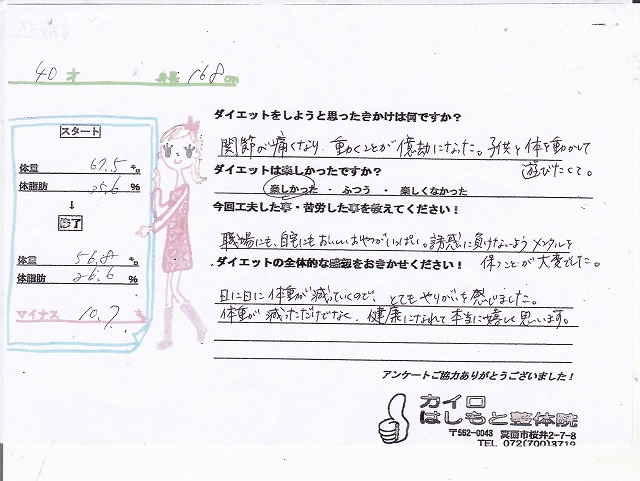 40才 身長 168cm
スタート
体重 67.5 kg
体脂肪 35.6 %
↓
終了
体重 56.8 kg
体脂肪 26.6 %
マイナス 10.7 kg
ダイエットをしようと思ったきかけは何ですか？
関節が痛くなり、動くことが億劫になった。子供と体を動かして
遊びたくて。
ダイエットは楽しかったですか？
楽しかった ・ ふつう ・ 楽しくなかった
今回工夫した事・苦労した事を教えてください！
職場にも、自宅にもおいしいおやつがいっぱい。誘惑に負けないようメンタルを
保つことが大変でした。
ダイエットの全体的な感想をおきかせください！
日に日に体重が減っていくので、とてもやりがいを感じました。
体重が減っただけでなく、健康になれて本当に嬉しく思います。
アンケートご協力ありがとうございました！
カイロ
はしもと整体院
〒562-0043 箕面市桜井2-7-8
TEL 072(700)3719